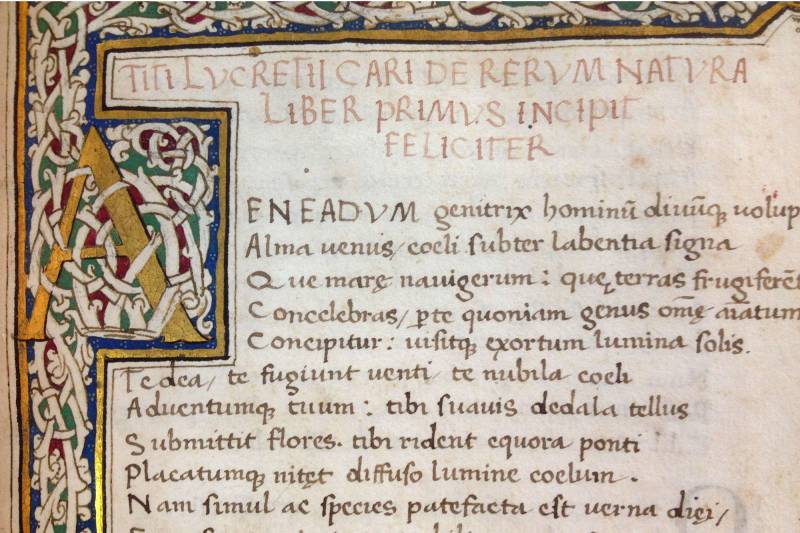 TITI LVCRETII CARI DE RERVM NATVRA
LIBER PRIMVS INCIPIT
FELICITER
AENEADVM genitrix hominū diuūq; volup
Alma uenus, coeli subter labentia signa
Que marę nauigerum: quę terras frugiferēt
Concelebras, ꝑte quoniam genus om̄ę aīatum
Concipitur: uisitq; exortum lumina solis.
Te dea, te fugiunt uenti, te nubila coeli
Aduentumq; tuum: tibi suauis dedala tellus
Submittit flores. tibi rident equora ponti
Placatumq; nitęt diffuso lumine coelum.
Nam simul ac species patefacta est uerna dięi,